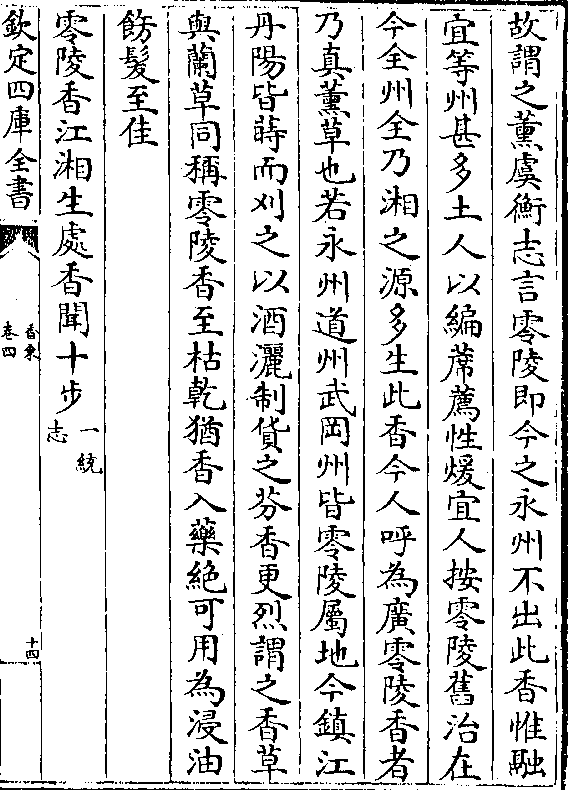 故謂之薰虞衡志言零陵即今之永州不出此香惟融
宜等州甚多土人以編蓆薦性煖宜人按零陵舊治在
今全州全乃湘之源多生此香今人呼為廣零陵香者
乃真薰草也若永州道州武岡州皆零陵屬地今鎮江
丹陽皆蒔而刈之以酒灑制貨之芬香更烈謂之香草
與蘭草同稱零陵香至枯乾猶香入藥絕可用為浸油
飾髮至佳
零陵香江湘生處香聞十步一統志
欽定四庫全書
香乘
卷四
十四